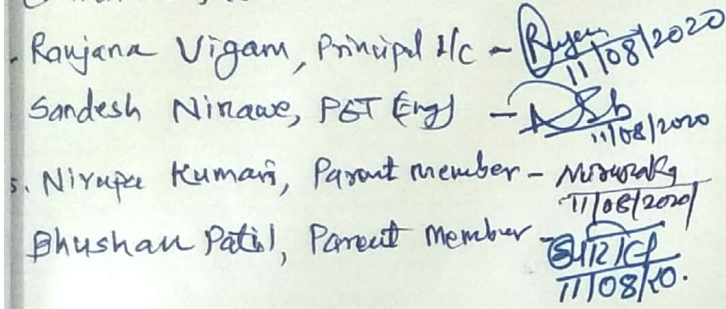 Ranjana Vigam, Principal I/c - 11/08/2020
Sandesh Ninawe, PGT (Eng) - 11/08/2020
5. Nirupa Kumari, Parent member - 11/08/2020
Bhushan Patil, Parent Member 11/08/20.